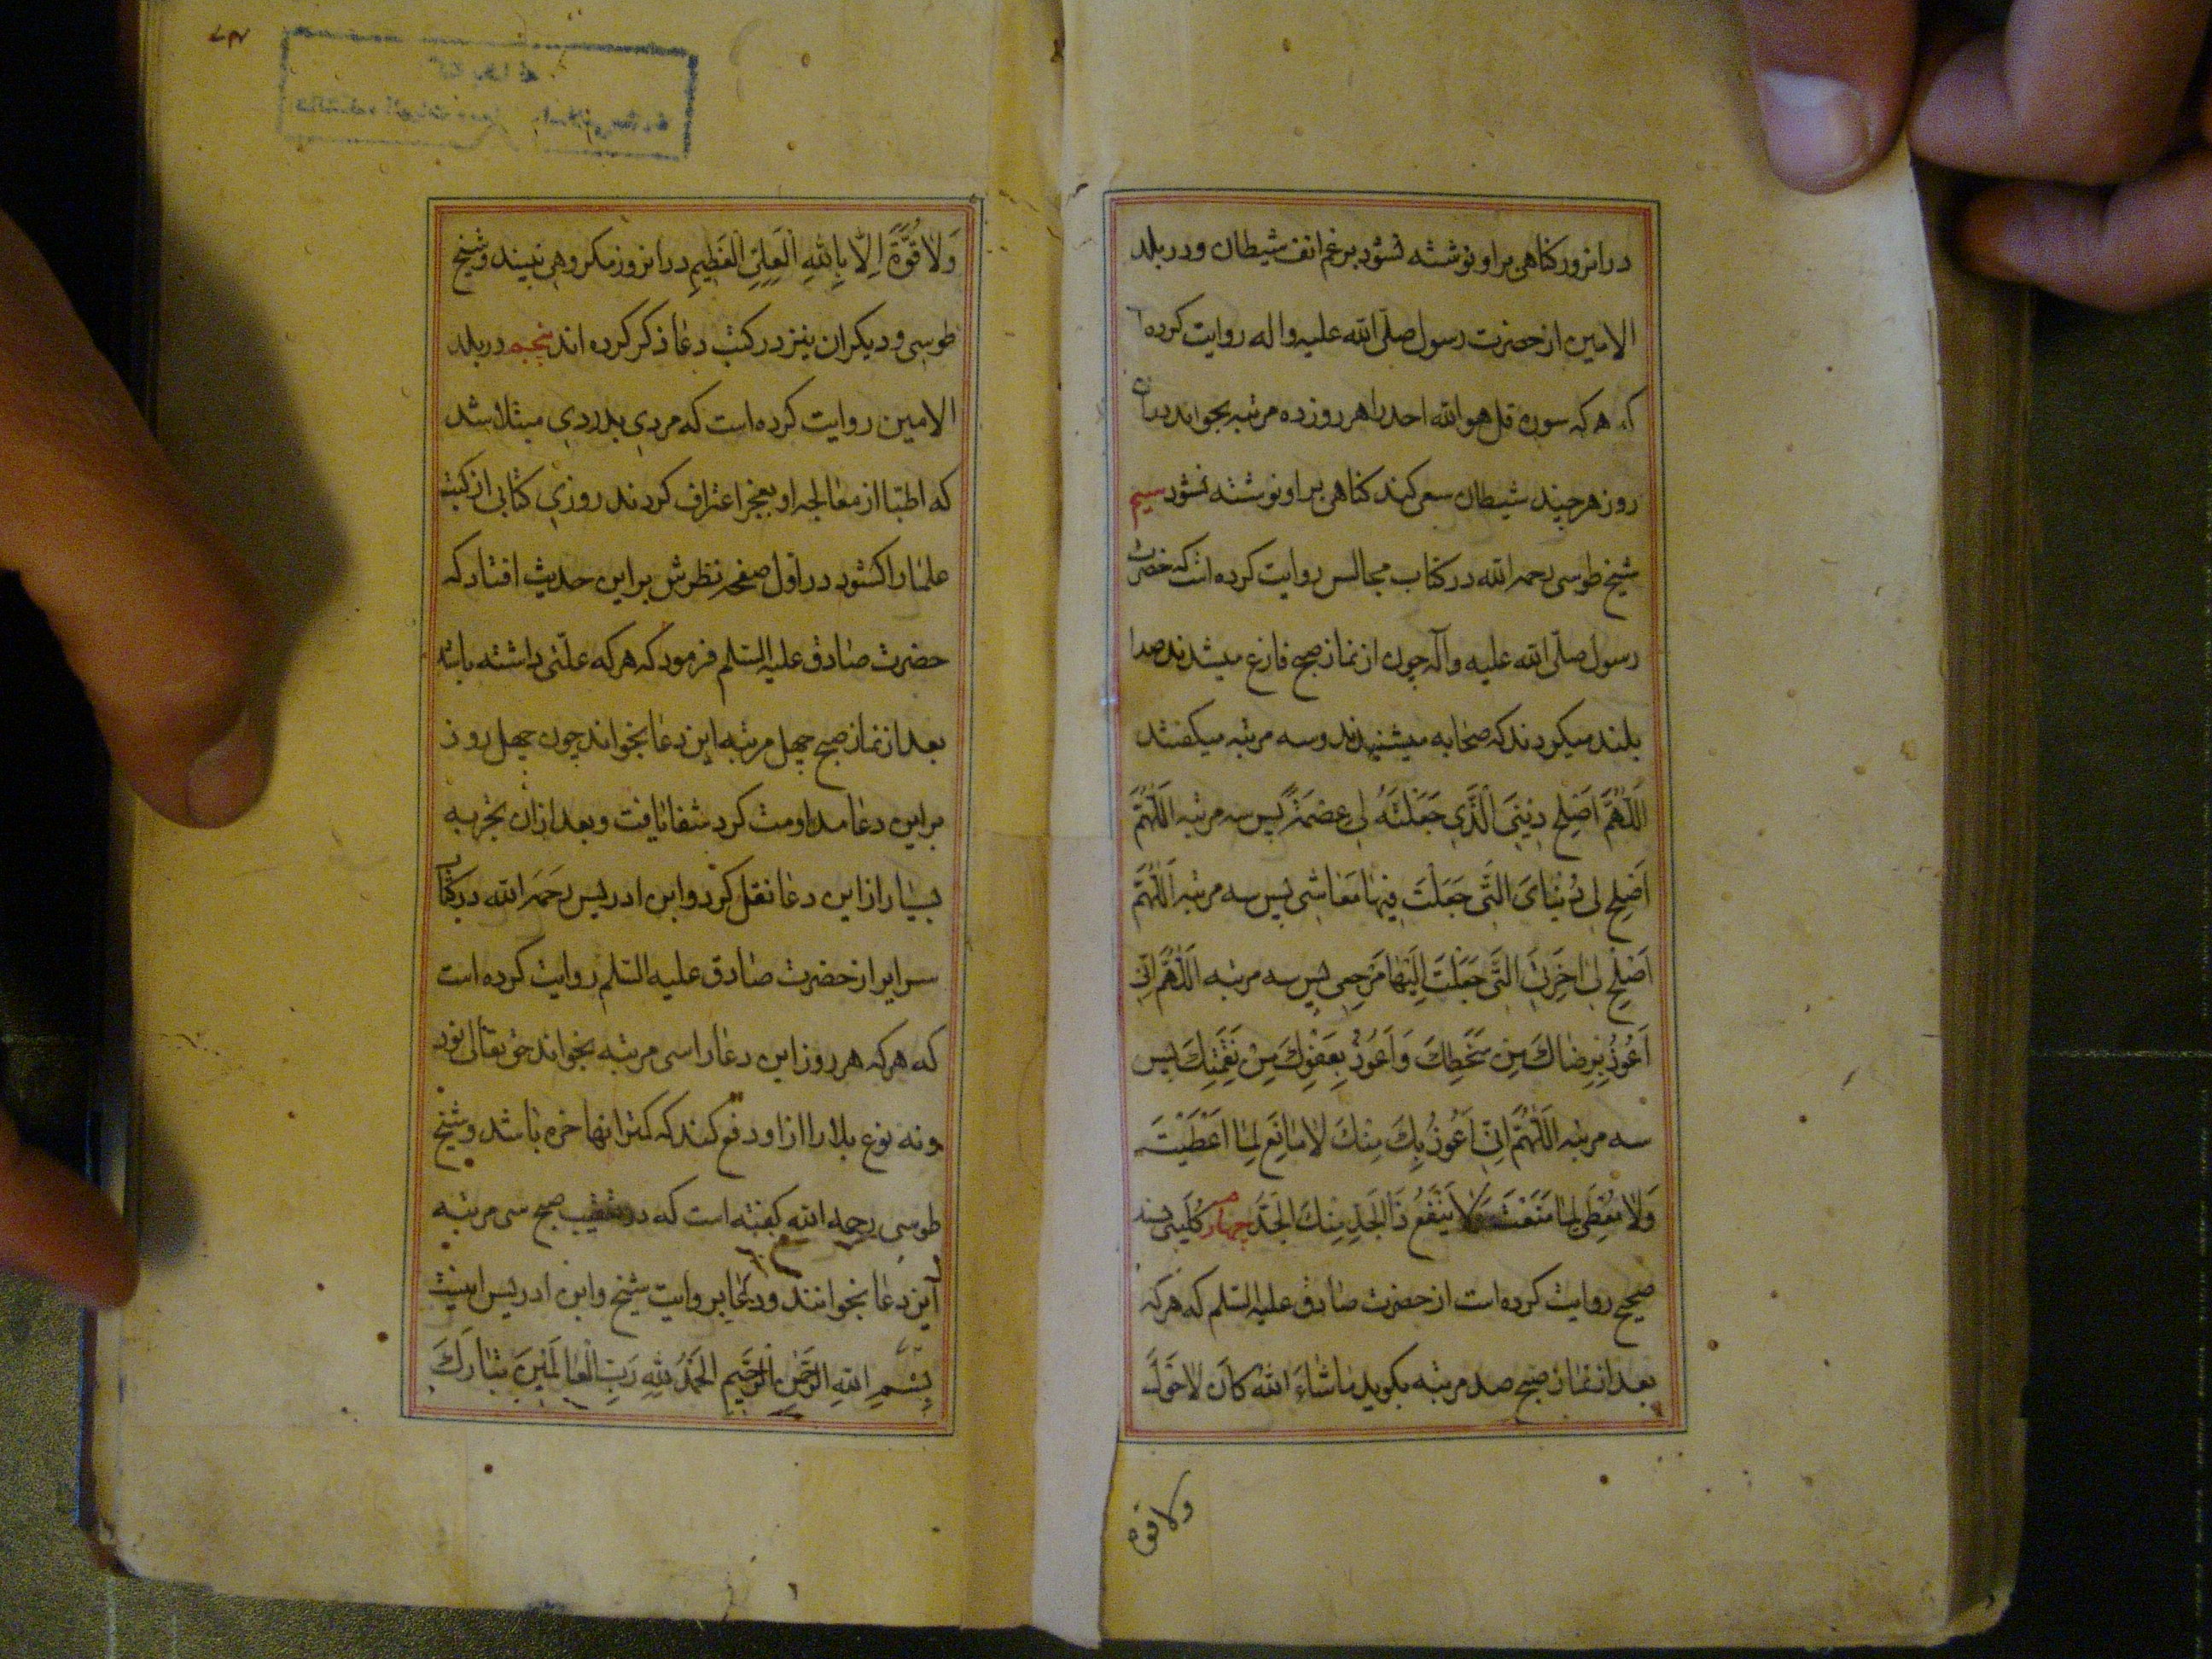 در انروز کناهی بر او نوشته نشود برغم انف شیطان و در بلد
الامین از حضرت رسول صلّی الله علیه و اله روایت کرده
که هر که سوره قل هو الله احد را هر روز ده مرتبه بخواند در ان
روز هر چند شیطان سعی کند کناهی بر او نوشته نشود سیم
شیخ طوسی رحمه الله در کتاب مجالس روایت کرده است که حضرت
رسول صلّی الله علیه و آله چون از نماز صبح فارغ میشدند صدا
بلند میکردند که صحابه میشنیدند و سه مرتبه میکفتند
اَللّهُمَّ اَصْلِح دِینِیَ الَّذی جَعَلْتَهُ لی عِصْمَةً پس سه مرتبه اللّهُمَّ
اَصْلِح لی دُنْیایَ الَّتی جَعَلْتَ فیها مَعاشی پس سه مرتبه اَللّهُمَّ
اَصْلِح لی اخِرَتِیَ الَّتی جَعَلْتَ اِلَیْها مَرْجِعی پس سه مرتبه اَللّهُمَّ اِنّی
اَعُوذُ بِرِضاکَ مِنْ سَخَطِکَ وَ اَعُوذُ بِعَفْوِکَ مِنْ نَقِمَتِکَ پس
سه مرتبه اَللّهُمَّ اِنّی اَعُوذُ بِکَ مِنْکَ لا مانِعَ لِما اَعْطَیْتَ
وَلا مُعْطِیَ لِما مَنَعْتَ وَلا یَنْفَعُ ذَا الْجَدِّ مِنْکَ الْجَدُّ چهارم کلینی بسند
صحیح روایت کرده است از حضرت صادق علیه السّلم که هر که
بعد از نماز صبح صد مرتبه بکوید ماشاءَ اللهُ کانَ لا حَوْلَ
ولا قوة
وَلا قُوَّةَ اِلّا بِاللهِ الْعَلِیِّ الْعَظِیمِ در انروز مکروهی نبیند و شیخ
طوسی و دیکران نیز در کتب دعا ذکر کرده اند پنجم در بلد
الامین روایت کرده است که مردی بدردی مبتلا شد
که اطبّا از معالجه او بعجز اعتراف کردند روزی کتابی از کتب
علما را کشود در اوّل صفحه نظرش بر این حدیث افتاد که
حضرت صادق علیه السّلم فرمود که هر که علّتی داشته باشد
بعد از نماز صبح چهل مرتبه این دعا بخواند چون چهل روز
بر این دعا مداومت کرد شفا یافت و بعد از ان تجربه
بسیار از این دعا نقل کرد و ابن ادریس رحمه الله در کتاب
سرایر از حضرت صادق علیه السّلم روایت کرده است
که هر که هر روز این دعا را سی مرتبه بخواند حق تعالی نود
و نه نوع بلا را از او دفع کند که کمتر انها خره باشد و شیخ
طوسی رحمه الله کفته است که در تعقیب صبح سی مرتبه
این دعا بخوانند و دعا بروایت شیخ و ابن ادریس اینست
بِسْمِ اللهِ الرَّحْمنِ الرَّحیم الْحَمْدُ لِلهِ رَبِّ الْعالَمینَ تَبارَکَ